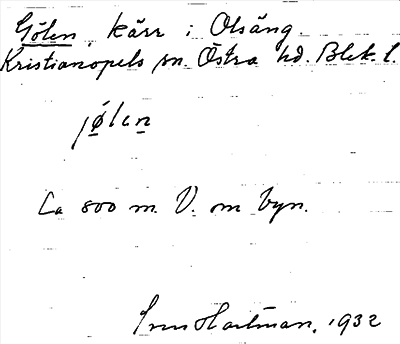 Gölen, kärr i Olsäng.
Kristianopels sn. Östra hd. Blek. l.
jølen
Ca 800 m. V. om byn.
Hartman. 1932